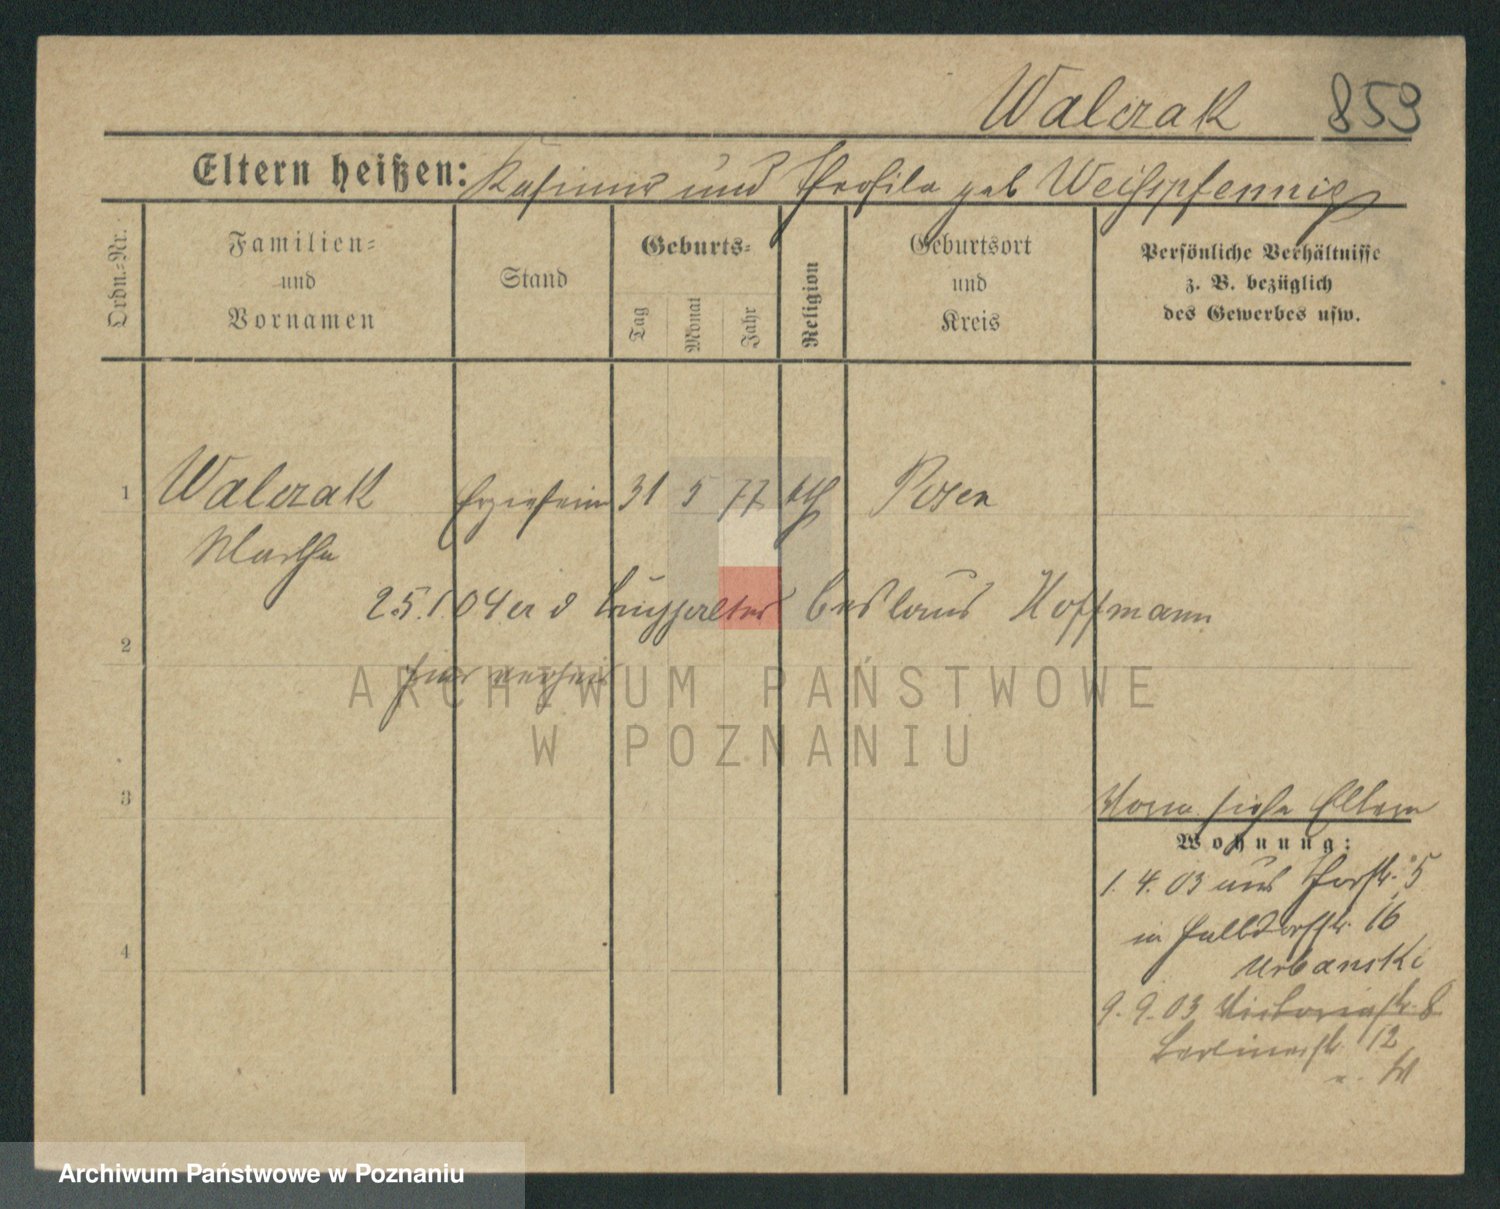 Walczak 853
Eltern heißen: Kasimir und Theofila geb Weihspfennig
Ordn.=Nr.
Familien=
und
Vornamen
Stand
Geburts=
Tag
Monat
Jahr
Religion
Geburtsort
und
Kreis
Persönliche Verhältnisse
z. B. bezüglich
des Gewerbes usw.
1 Walczak Erzieherin 31 5 77 kth Posen
Martha
25. 1 04 Buchhalter Ceslaus Hoffmann
2
hier verheir
3
Vorm siehe Eltern
Wohnung:
1. 4. 03 aus Thorstr. 5
in Halbdorfstr. 16
4
Urbanski
9. 9. 03 Victoriastr. 8
Berlinerstr. 12
ARCHIWUM PAŃSTWOWE
W POZNANIU
Archiwum Państwowe w Poznaniu